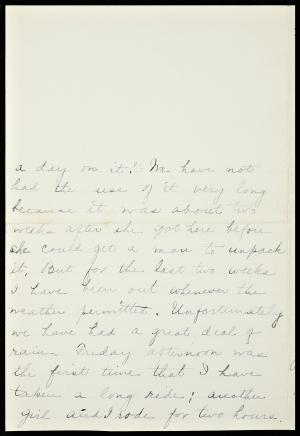 a day on it! We have not
had the use of it very long
because it was about two
weeks after she got here before
she could get a man to unpack
it. But for the last two weeks
I have been out whenever the
weather permitted. Unfortunately
we have had a great deal of
rain. Friday afternoon was
the first time that I have
taken a long ride; another
girl and I rode for two hours.